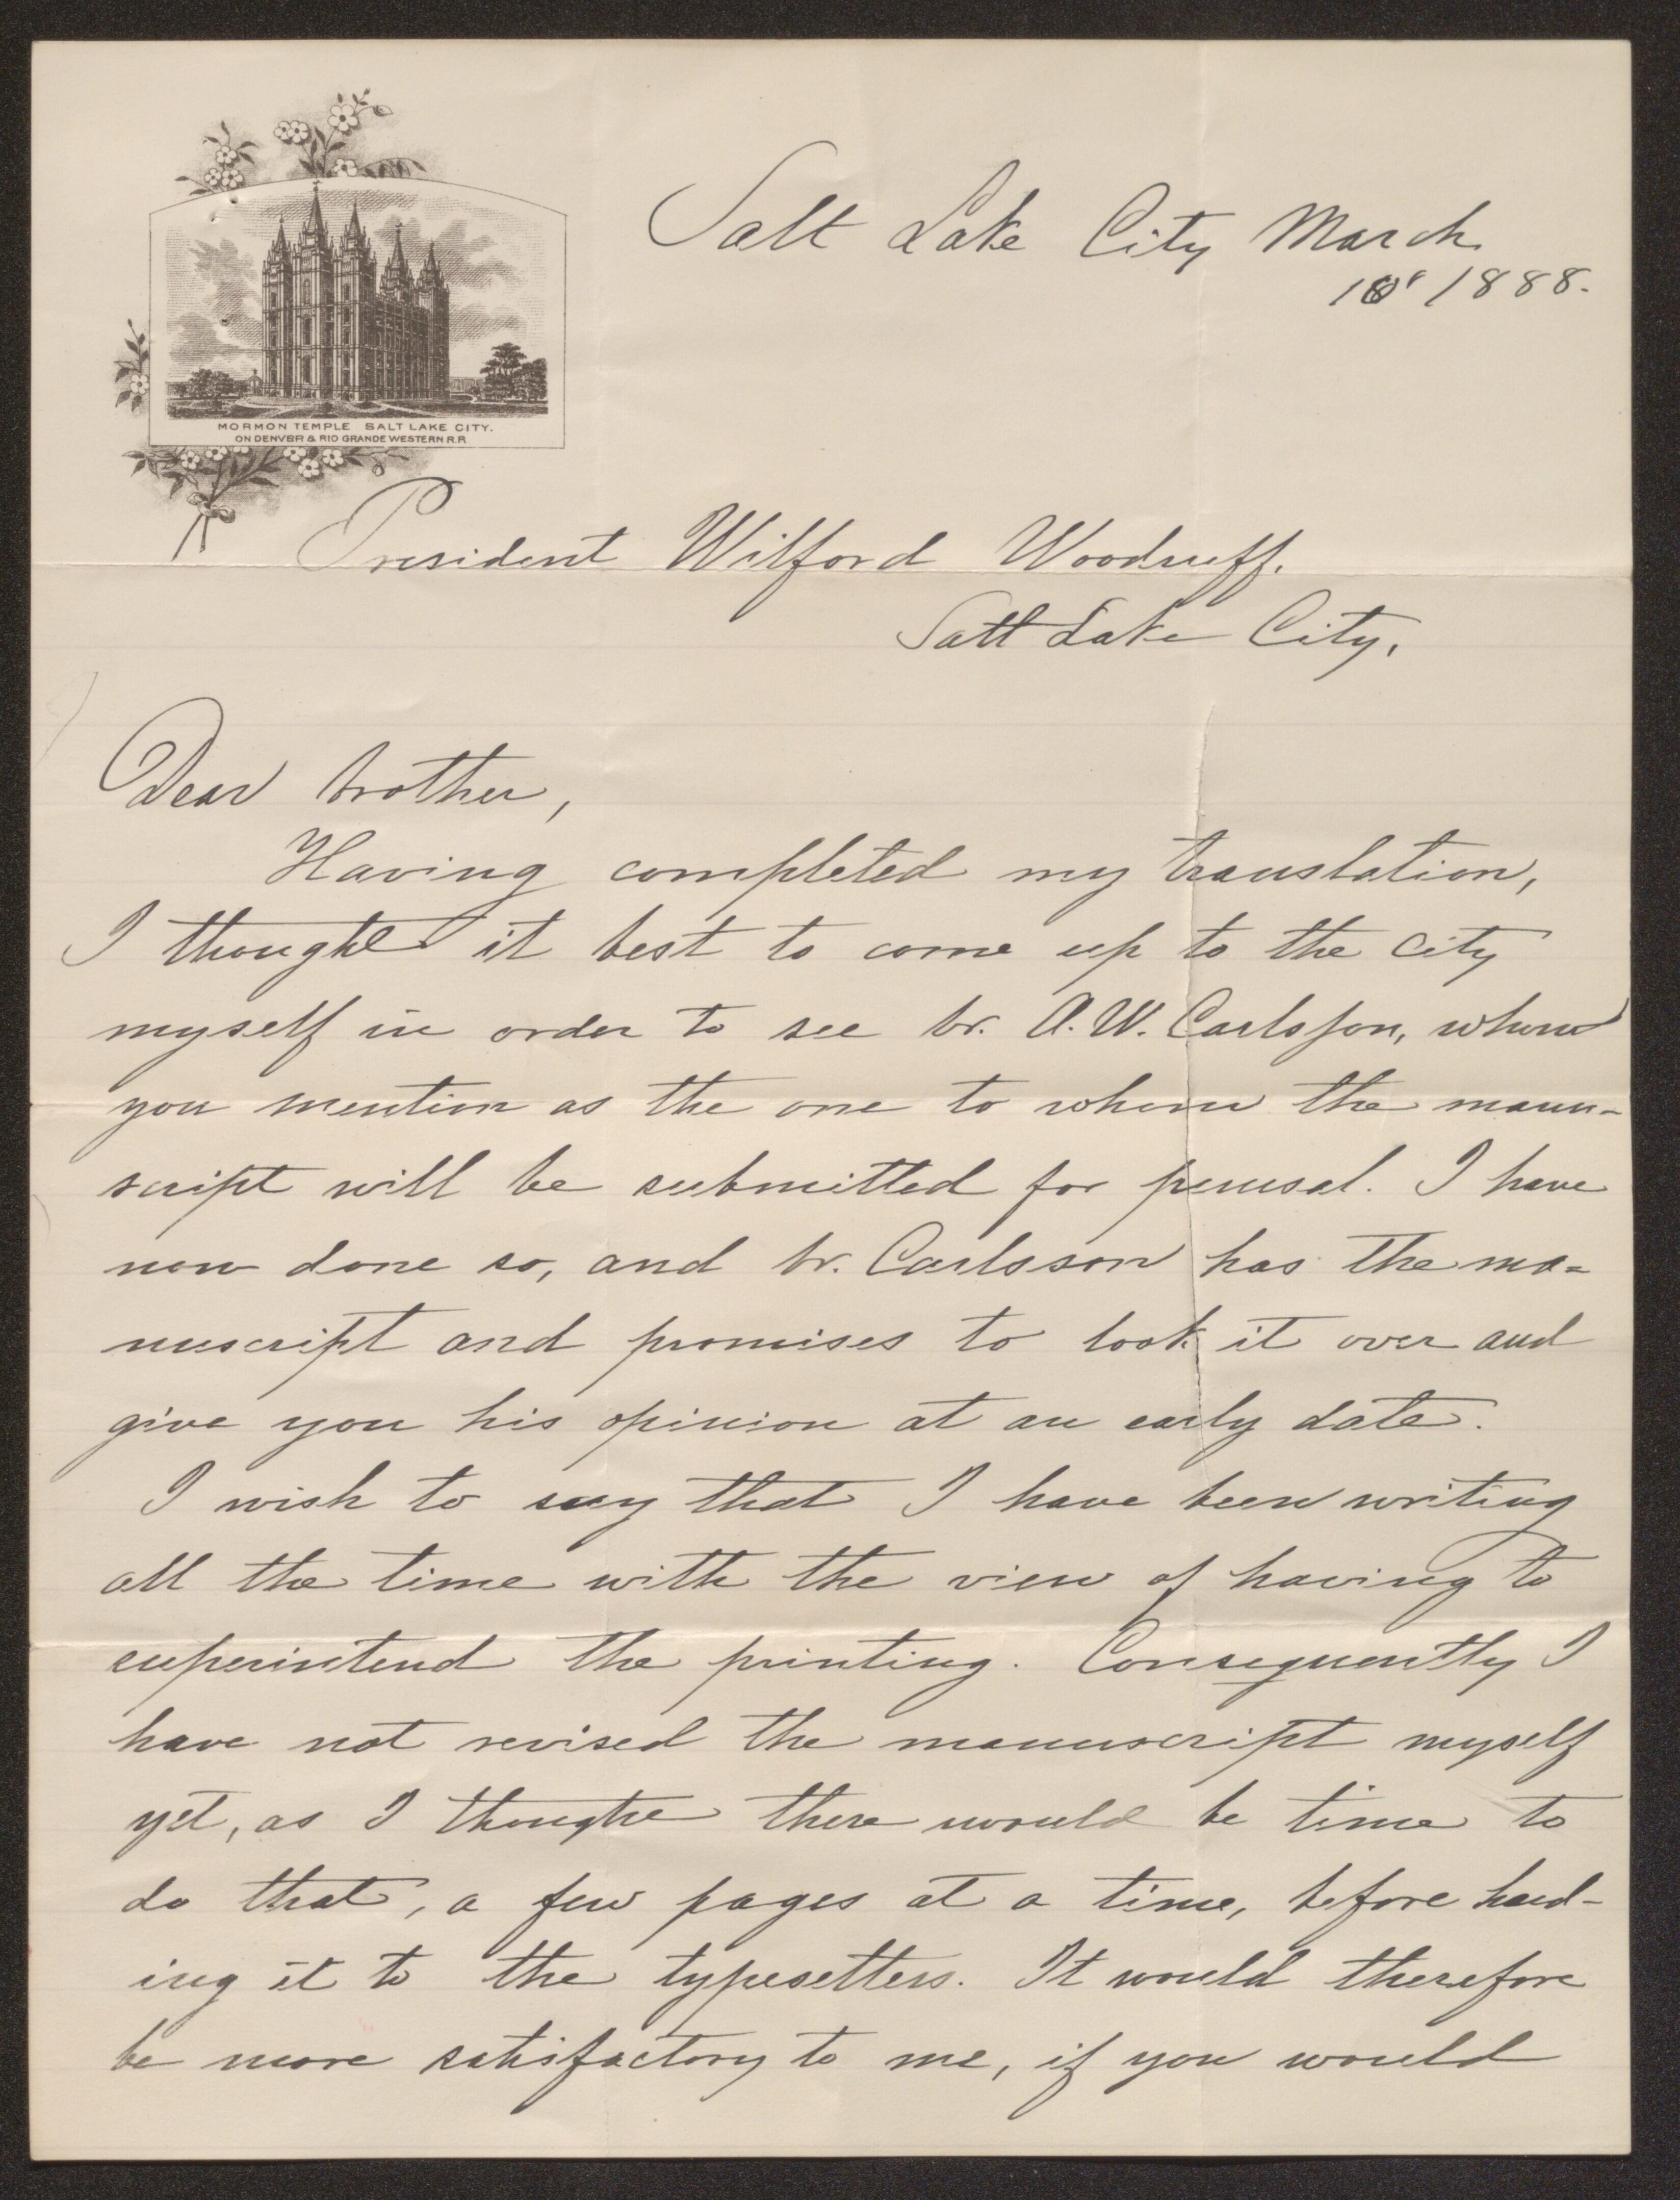 MORMON TEMPLE SALT LAKE CITY.
ON DENVER & RIO GRANDE WESTERN R.R.
Salt Lake City March
1888.
President Wilford Woodruff.
Salt Lake City.
Dear brother,
Having completed my translation,
I thought it best to come up to the city
myself in order to see br. A. W. Carlsson, whom
you mention as the one to whom the manu-
script will be submitted for perusal. I have
now done so, and br. Carlsson has the ma-
nuscript and promises to look it over and
give you his opinion at an early date.
I wish to say that I have been writing
all the time with the view of having to
superintend the printing. Consequently I
have not revised the manuscript myself
yet, as I thought there would be time to
do that, a few pages at a time, before hand-
ing it to the typesetters. It would therefore
be more satisfactory to me, if you would